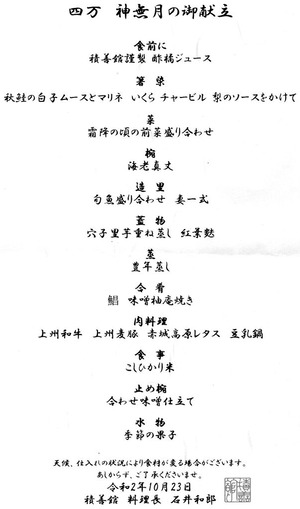 四万　神無月の御献立
食前に
積善館謹製 酢橘ジュース
箸染
秋鮭の白子ムースとマリネ　いくら　チャービル　梨のソースをかけて
菜
霜降の頃の前菜盛り合わせ
椀
海老真丈
造里
旬魚盛り合わせ　妻一式
蓋物
穴子里芋重ね蒸し　紅葉麩
蒸
豊年蒸し
合肴
鯧　味噌柚庵焼き
肉料理
上州和牛　上州麦豚　赤城高原レタス　豆乳鍋
食事
こしひかり米
止め椀
合わせ味噌仕立て
水物
季節の果子
天候、仕入れの状況により食材が変る場合がございます。
あしからず、ご了承くださいませ。
令和2年10月23日
積善館　料理長　石井和郎